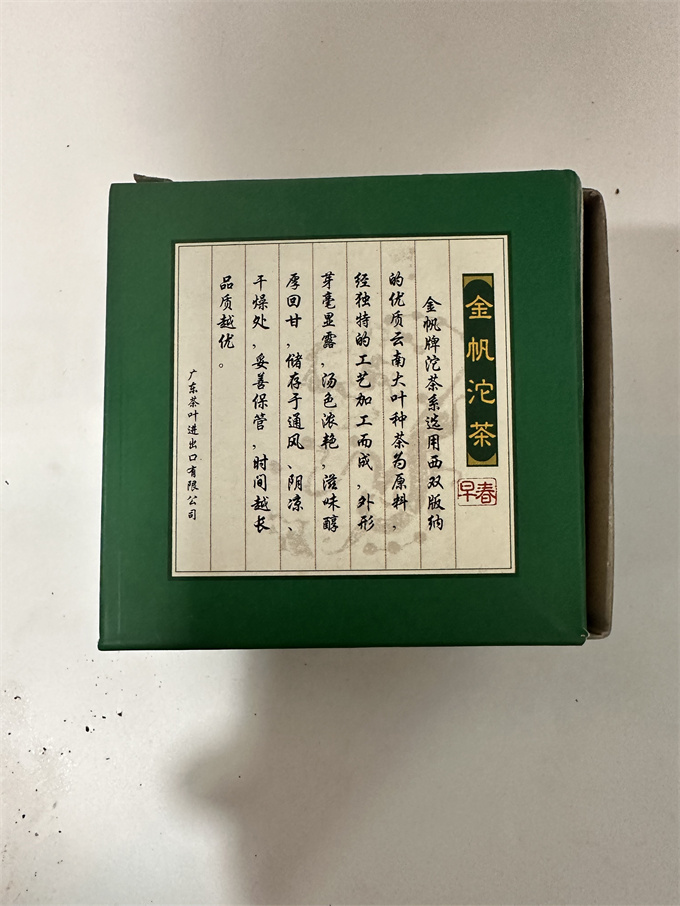 金帆沱茶
早春
金帆牌沱茶系选用西双版纳
的优质云南大叶种茶为原料，
经独特的工艺加工而成，外形
芽毫显露，汤色浓艳，滋味醇
厚回甘，储存于通风、阴凉、
干燥处，妥善保管，时间越长
品质越优。
广东茶叶进出口有限公司